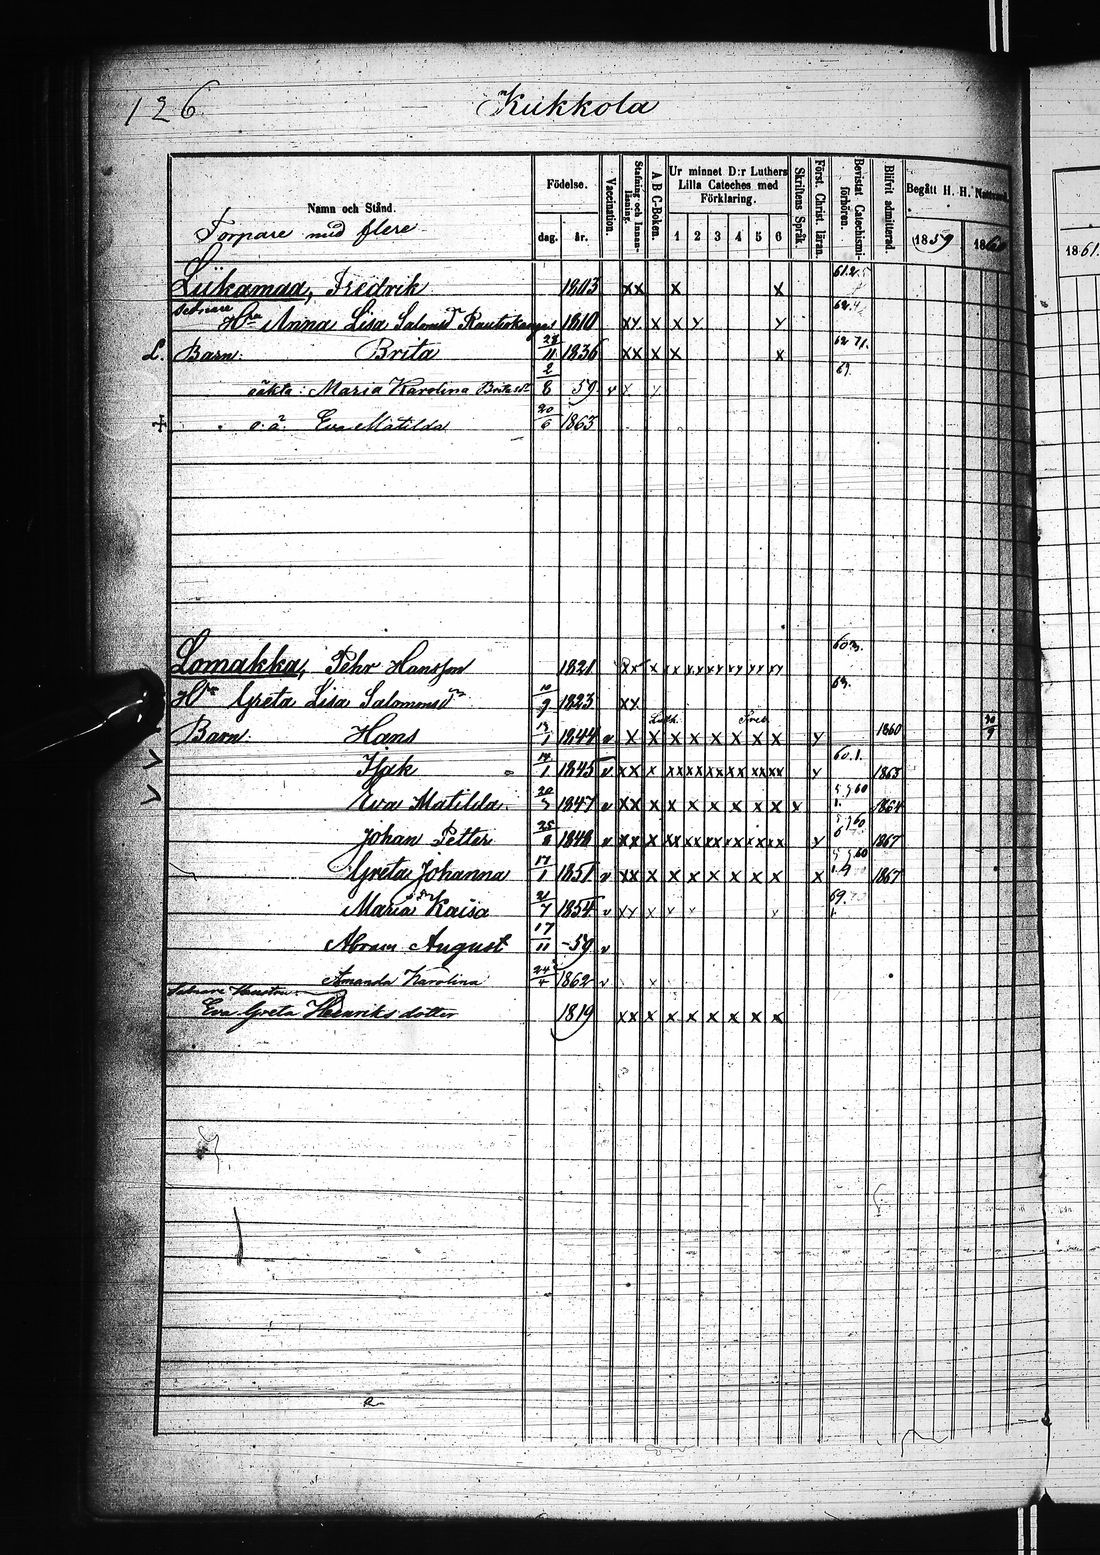 126.
Kukkola
Namn och Stånd.
Födelse.
dag.
år.
Vaccination.
Stafning och Innanläsning.
A B C-Boken.
Ur minnet D:r Luthers Lilla Cateches med Förklaring.
1 2 3 4 5 6
Skriftens Språk.
Först. Christ läran.
Bevistat Catechismiförhören.
Blifvit admitterad.
Begått H. H. Nattvard.
1859
1860
1861.
Torpare med flere
Liikamaa, Fredrik 1803 xx x x
Hru Anna Lisa Salomsdr 1810 xx x x x x
L. Barn: Brita 28/11 1836 xx x x x
oäkta: Maria Karolina 2/8 59 v x x 69.
o.ä. Eva Matilda 20/6 1863
Lomakka, Pehr Hansson 1821
Hru Greta Lisa Salomonsdr 10/9 1823 xx 63.
Barn: Hans 13/1 1844 v x x x x x x x x y 1860 30/9
Isak 14/1 1845 v xx x xx xx xx xx xx xx y 60.1. 1863
Eva Matilda 20/5 1847 v xx x x x x x x x x 1864
Johan Petter 25/8 1848 v xx x xx xx xx xx xx xx y 1867
Greta Johanna 17/1 1851 v xx x x x x x x x x 1867
Maria Kaisa 21/7 1854 v xy x x x x 69.
Abram August 17/11 -59 v
Amanda Karolina 24/4 1862 v x
Eva Greta Henriksdotter 1819 xx x x x x x x x